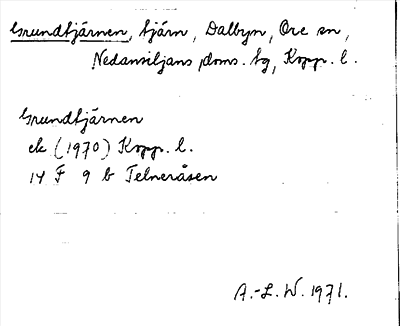 Grundtjärnen, tjärn, Dalbyn, Ore sn,
Nedansiljans doms. tg, Kopp. l.
Grundtjärnen
ek (1970) Kopp. l.
14 F 9 b Telneråsen
A.-L. W. 1971.